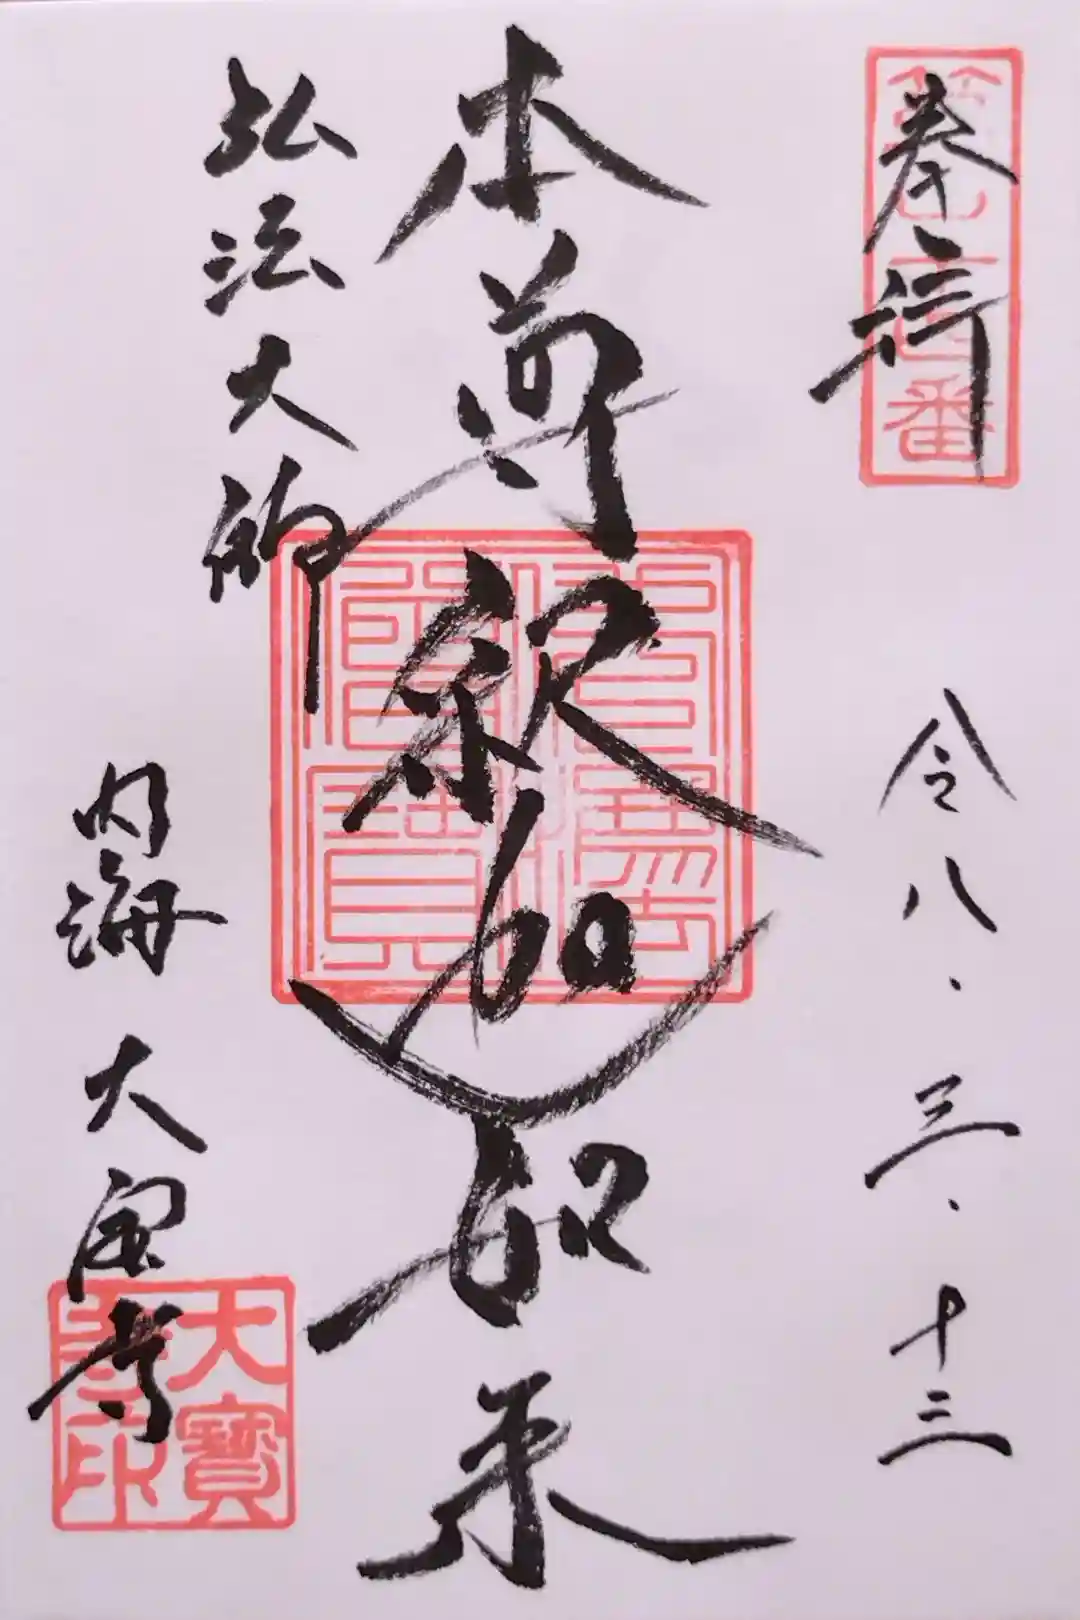 奉行
令八.三.十三
本尊釈迦如来
弘法大師
内海 大宝寺
大寳
寺印